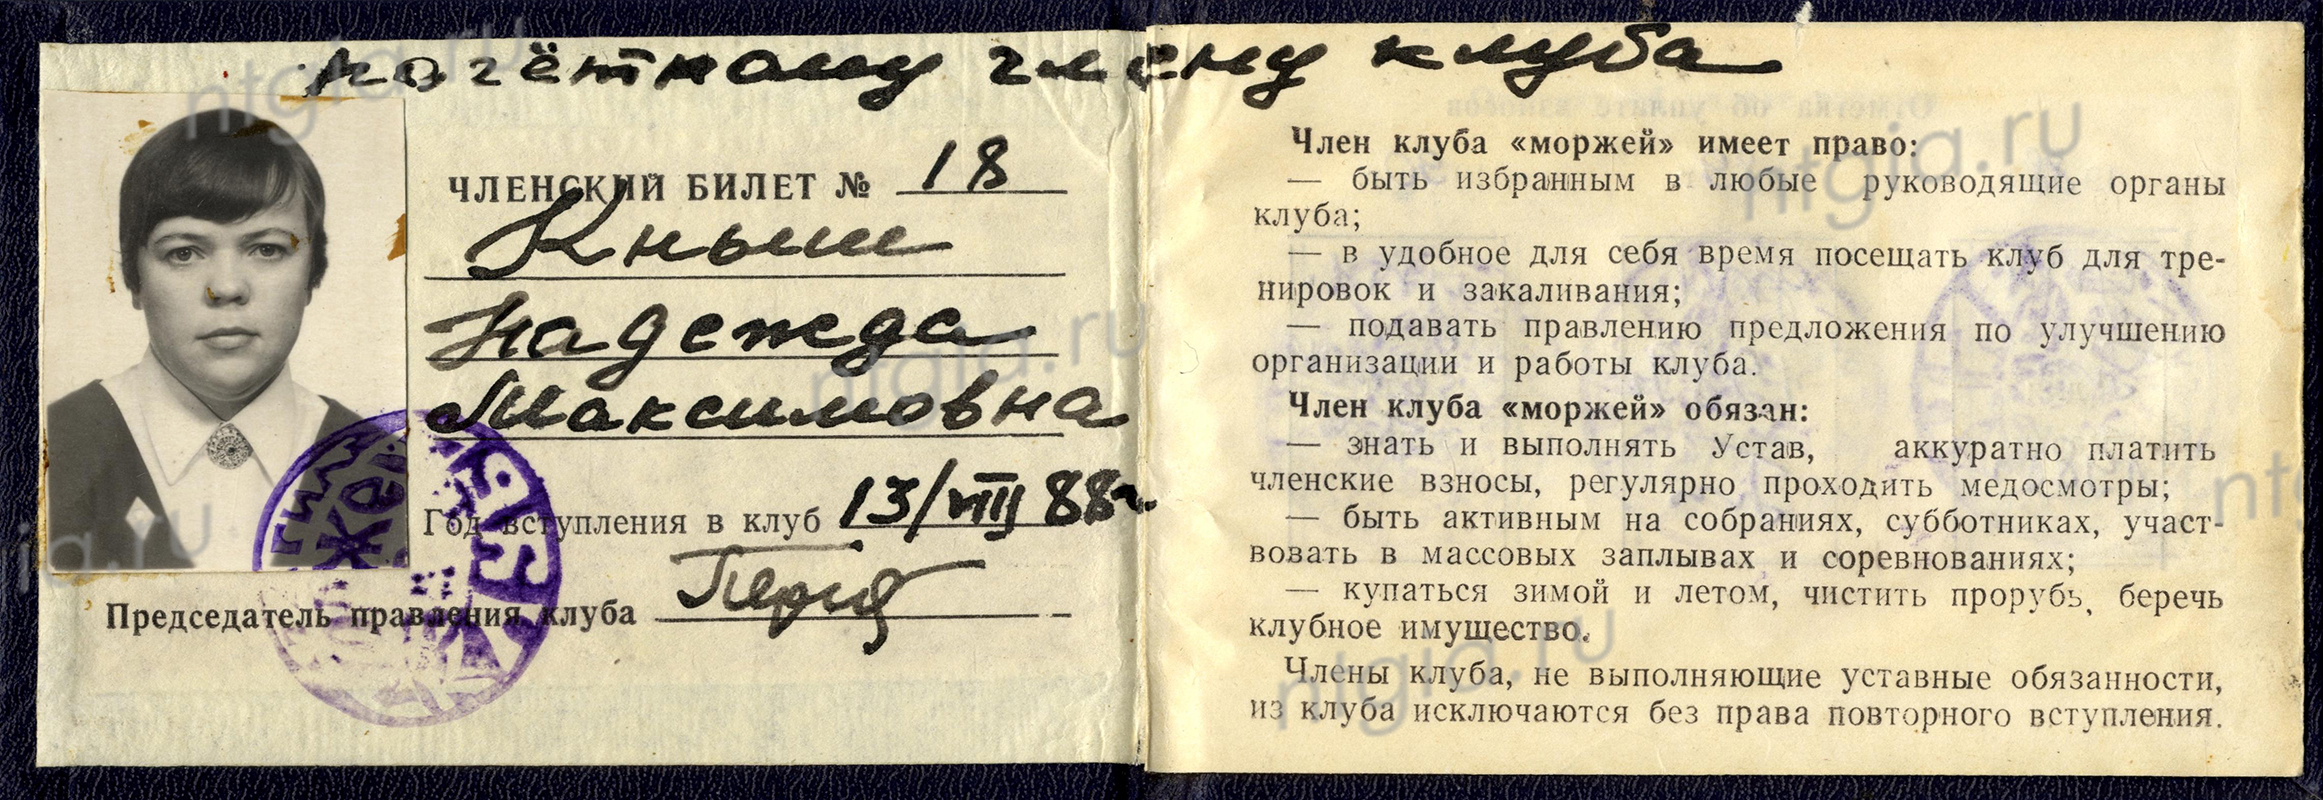 почётному члену клуба
ЧЛЕНСКИЙ БИЛЕТ № 18
Кныш
Надежда
Максимовна
Год вступления в клуб 13/VIII 88г
Председатель правления клуба
Член клуба «моржей» имеет право:
— быть избранным в любые руководящие органы
клуба;
— в удобное для себя время посещать клуб для тре-
нировок и закаливания;
— подавать правлению предложения по улучшению
организации и работы клуба.
Член клуба «моржей» обязан:
— знать и выполнять Устав, аккуратно платить
членские взносы, регулярно проходить медосмотры;
— быть активным на собраниях, субботниках, участ-
вовать в массовых заплывах и соревнованиях;
— купаться зимой и летом, чистить прорубь, беречь
клубное имущество.
Члены клуба, не выполняющие уставные обязанности,
из клуба исключаются без права повторного вступления.
ntgia.ru
ntgia.ru
ntgia.ru
ntgia.ru